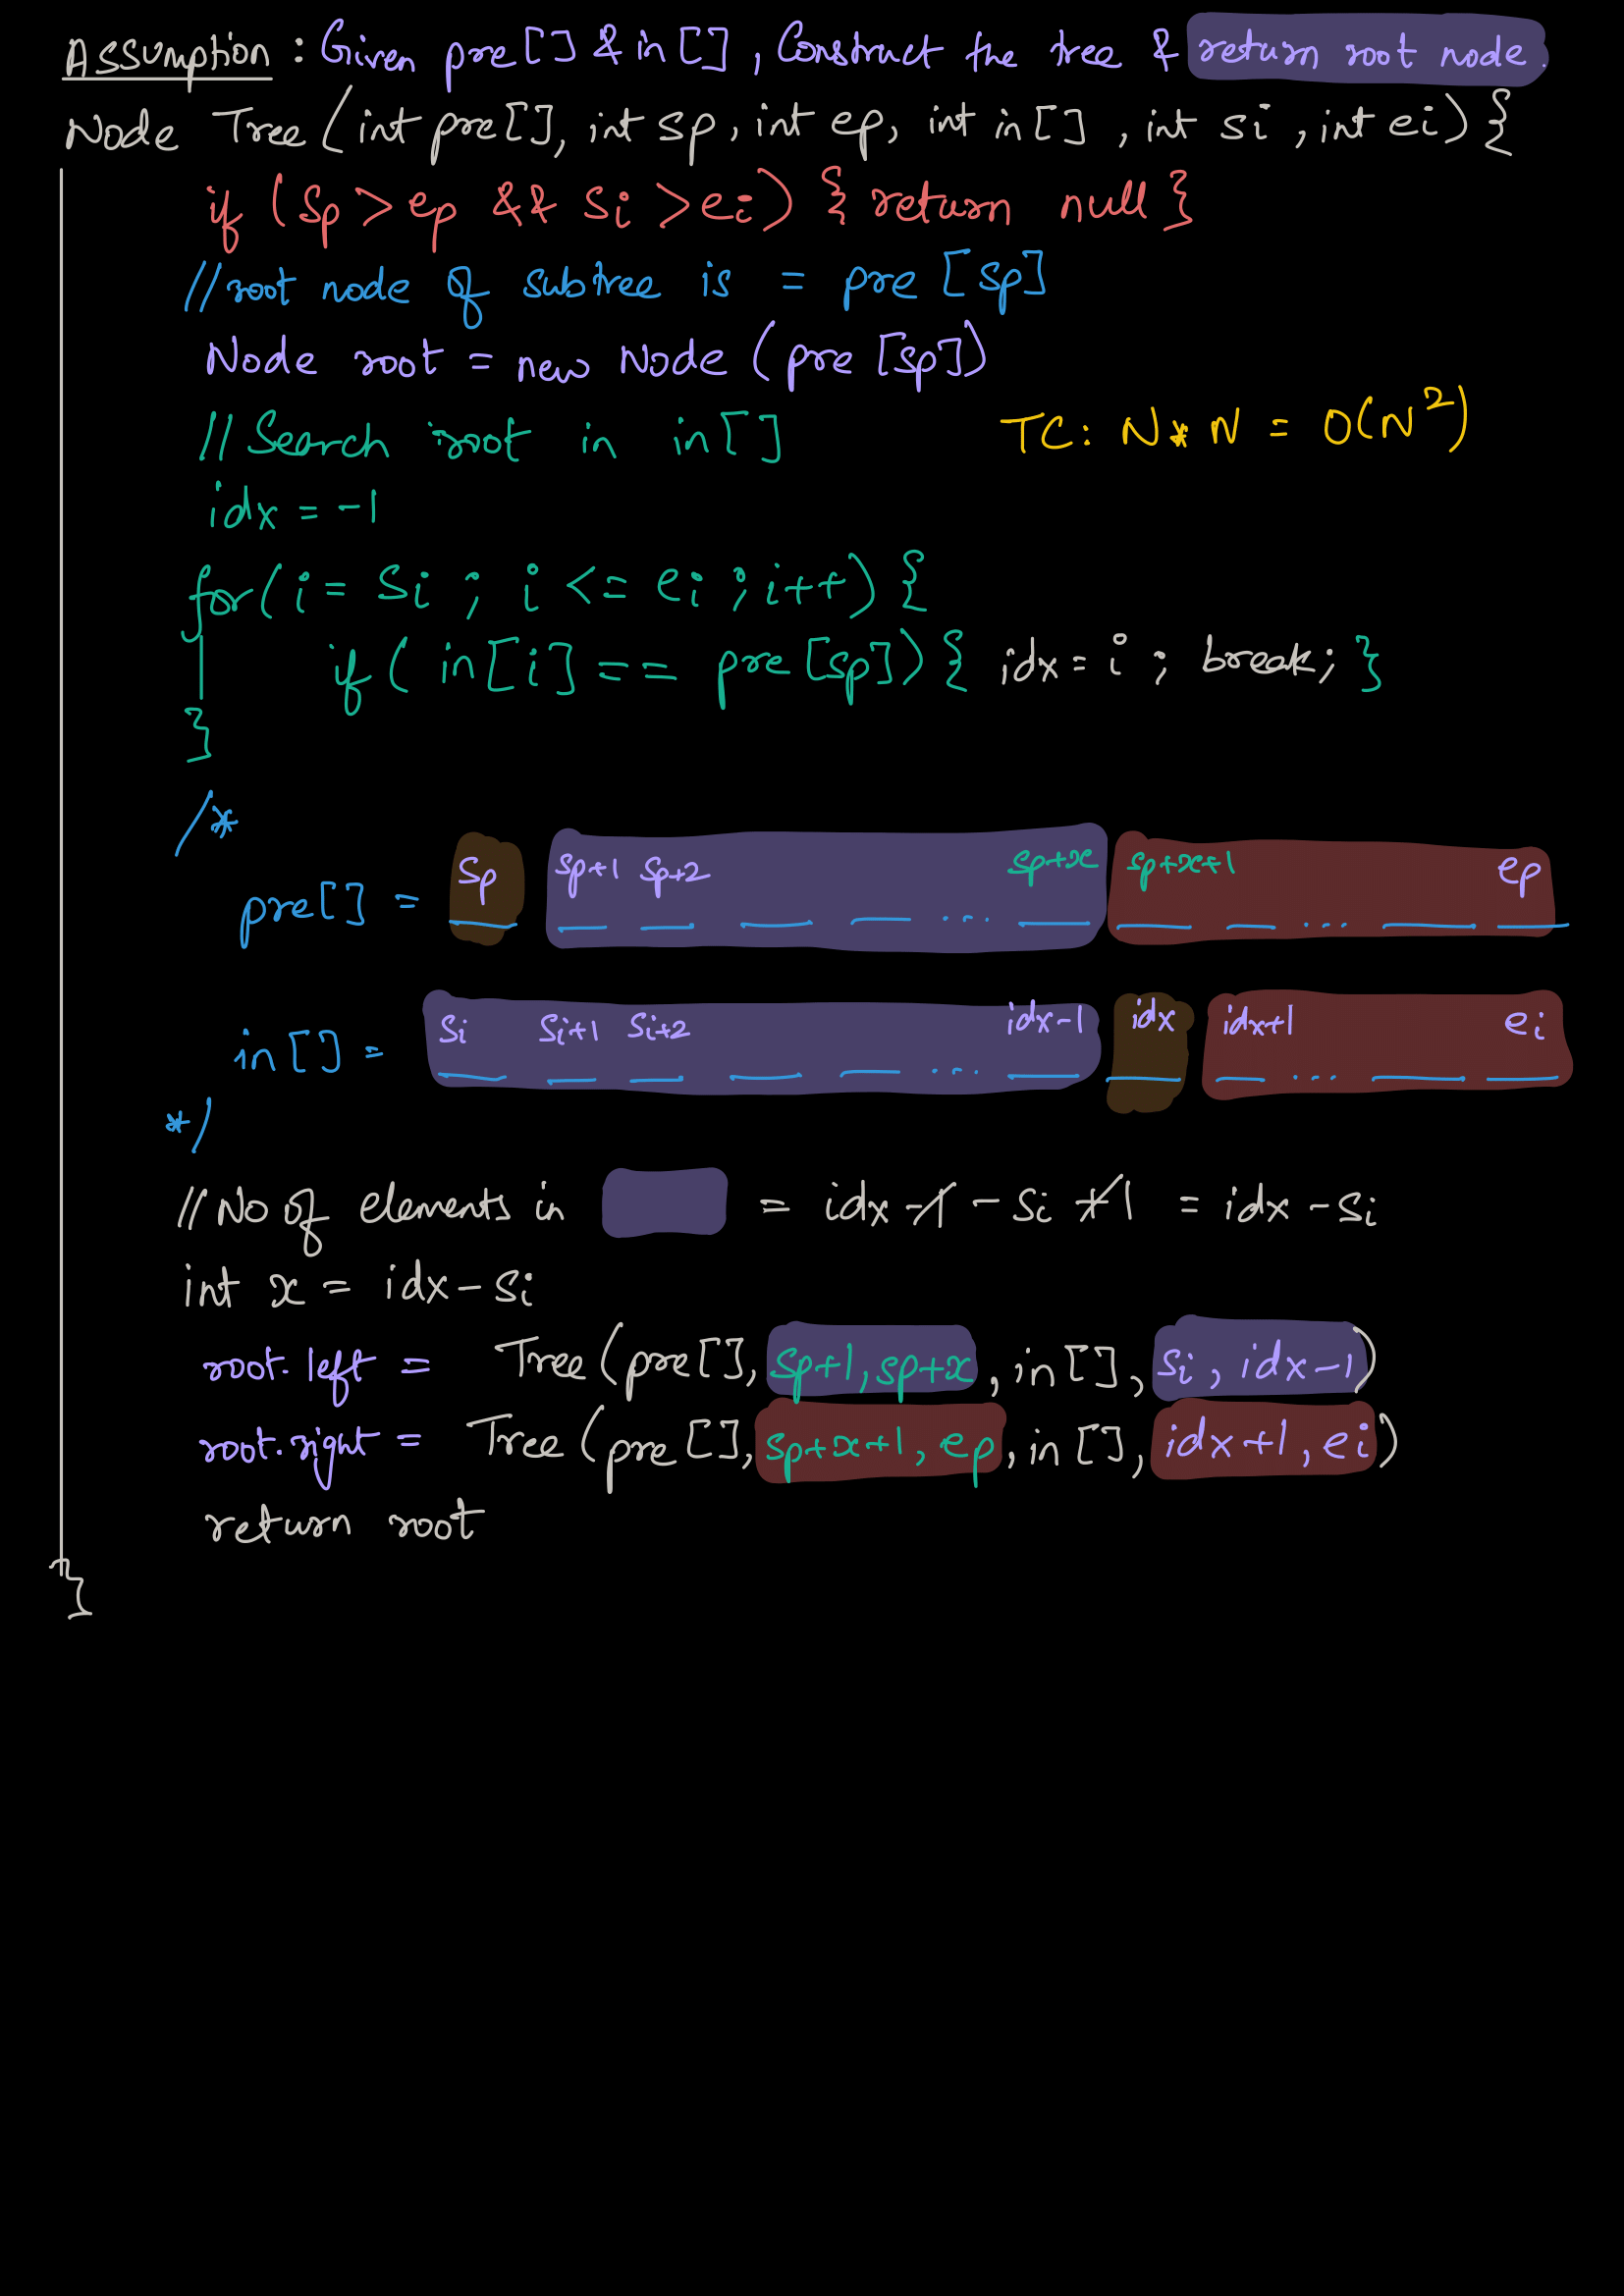 Assumption : Given pre[] & in[] , Construct the tree & return root node.
Node Tree (int pre[], int sp, int ep, int in[] , int si , int ei) {
if (sp > ep && si > ei) { return null }
//root node of subtree is = pre [sp]
Node root = new Node (pre [sp])
//Search root in in[]
TC: N * N = O(N²)
idx = -1
for(i = si ; i <= ei ; i++) {
if( in[i] == pre[sp]) { idx = i ; break; }
}
/*
sp sp+1 sp+2 sp+x sp+x+1 ep
pre[] = — — — — — ... — — — ... — —
si si+1 si+2 idx-1 idx idx+1 ei
in[] = — — — — — ... — — — ... — —
*/
//No of elements in = idx -1 - si +1 = idx - si
int x = idx - si
root.left = Tree (pre[], sp+1, sp+x , in[], si , idx-1)
root.right = Tree (pre[], sp+x+1 , ep , in[], idx+1 , ei)
return root
}